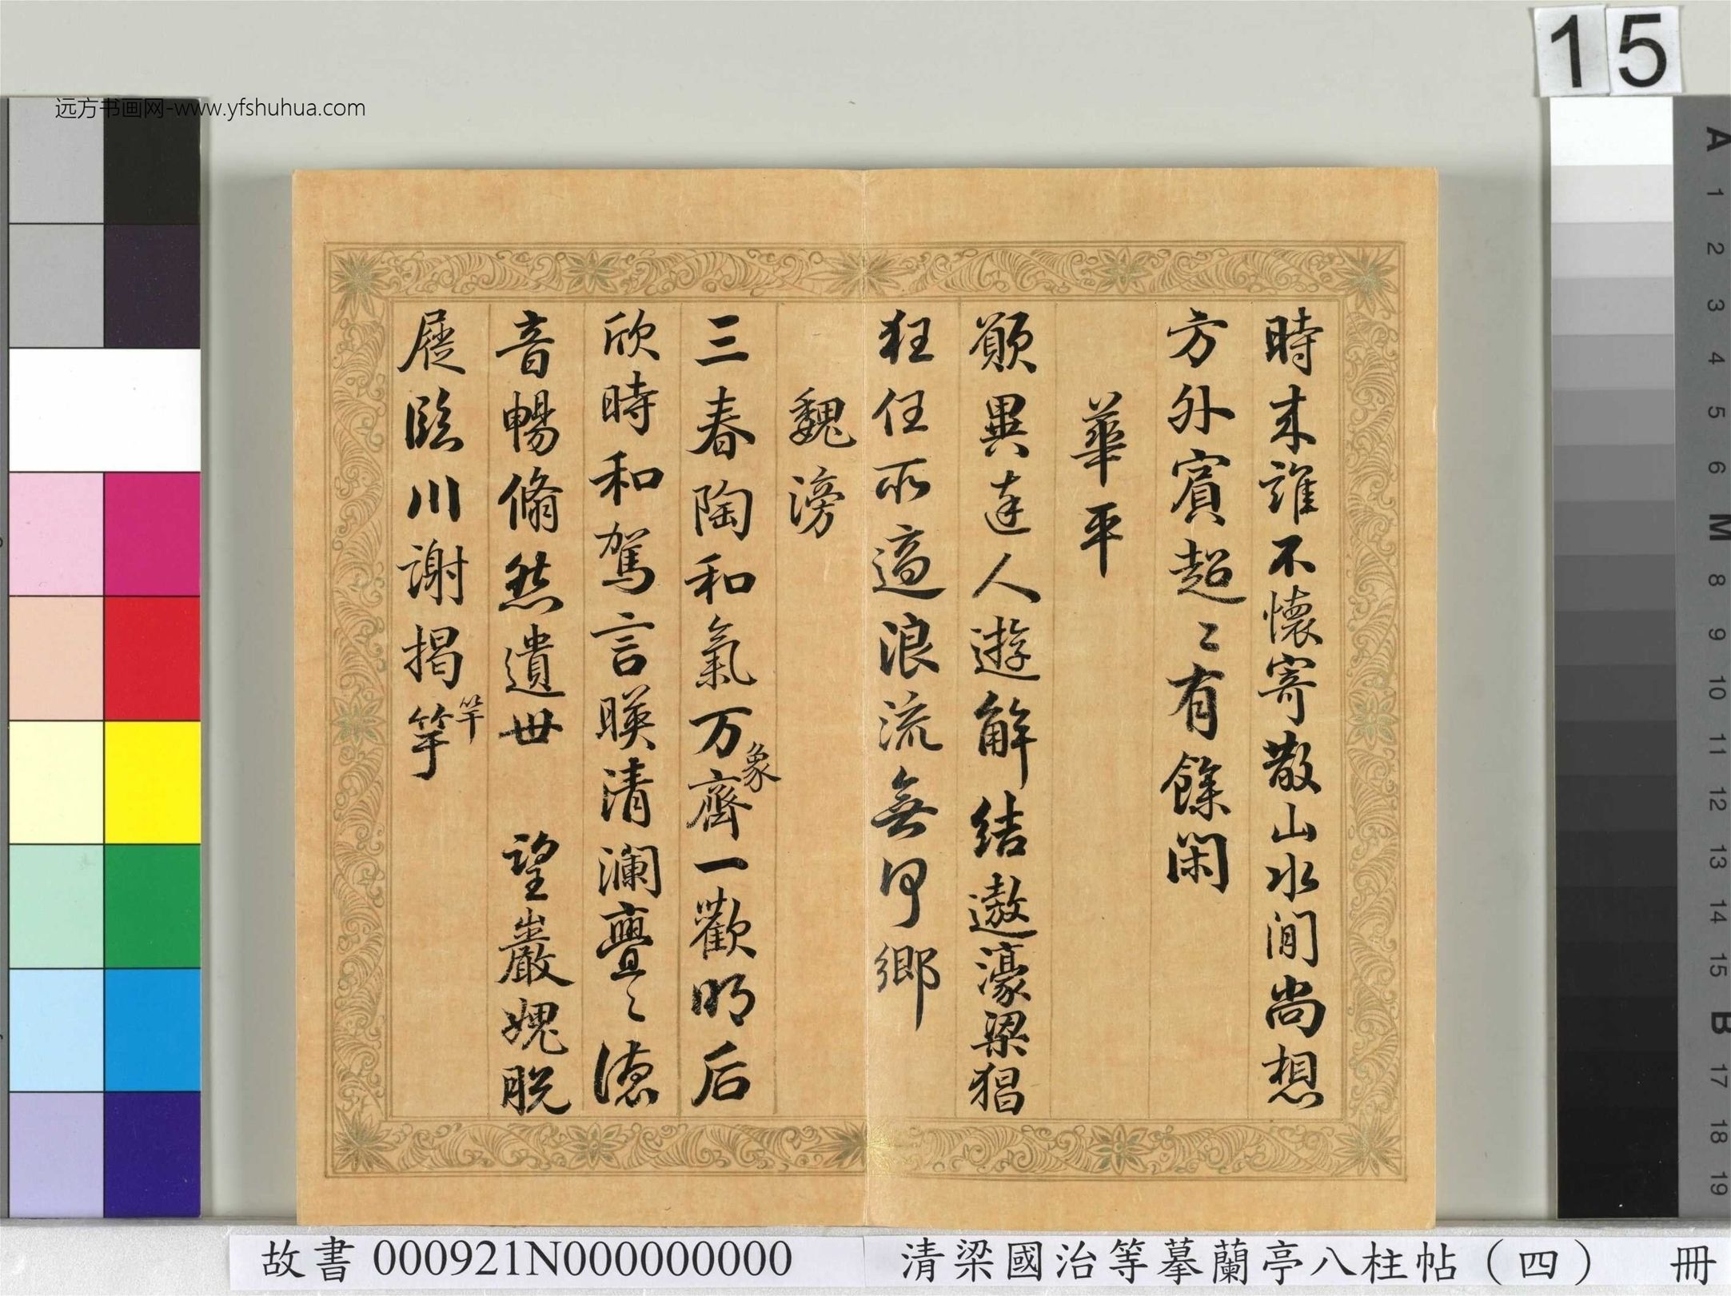 15
远方书画网-www.yfshuhua.com
時来誰不懷寄散山水間尚想
方外賓超〻有餘閑
華平
願與達人遊解結遨濠梁狂
狂任所適浪流無何鄉
魏滂
三春陶和氣万齊一歡明后
象
欣時和駕言暎清瀾亹〻德
音暢脩然遺世 望巖愧脫
屣臨川謝揭竿
竿
A
1
2
3
4
5
6
M
8
9
10
11
12
13
14
15
B
17
18
19
故書 000921N000000000
清梁國治等摹蘭亭八柱帖（四） 冊